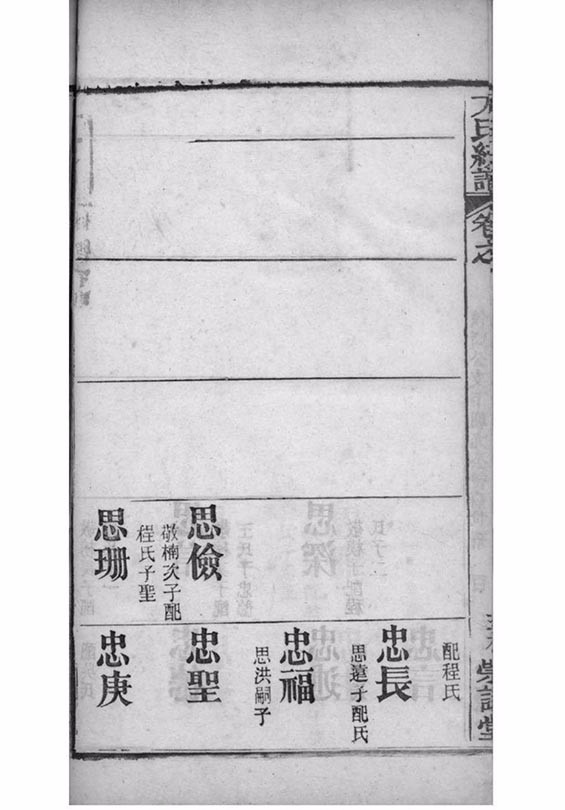 方氏統譜
卷之
思儉
敬楠次子配
程氏子聖
思珊
配程氏
忠長
思遠子配氏
忠福
思洪嗣子
忠聖
忠庚